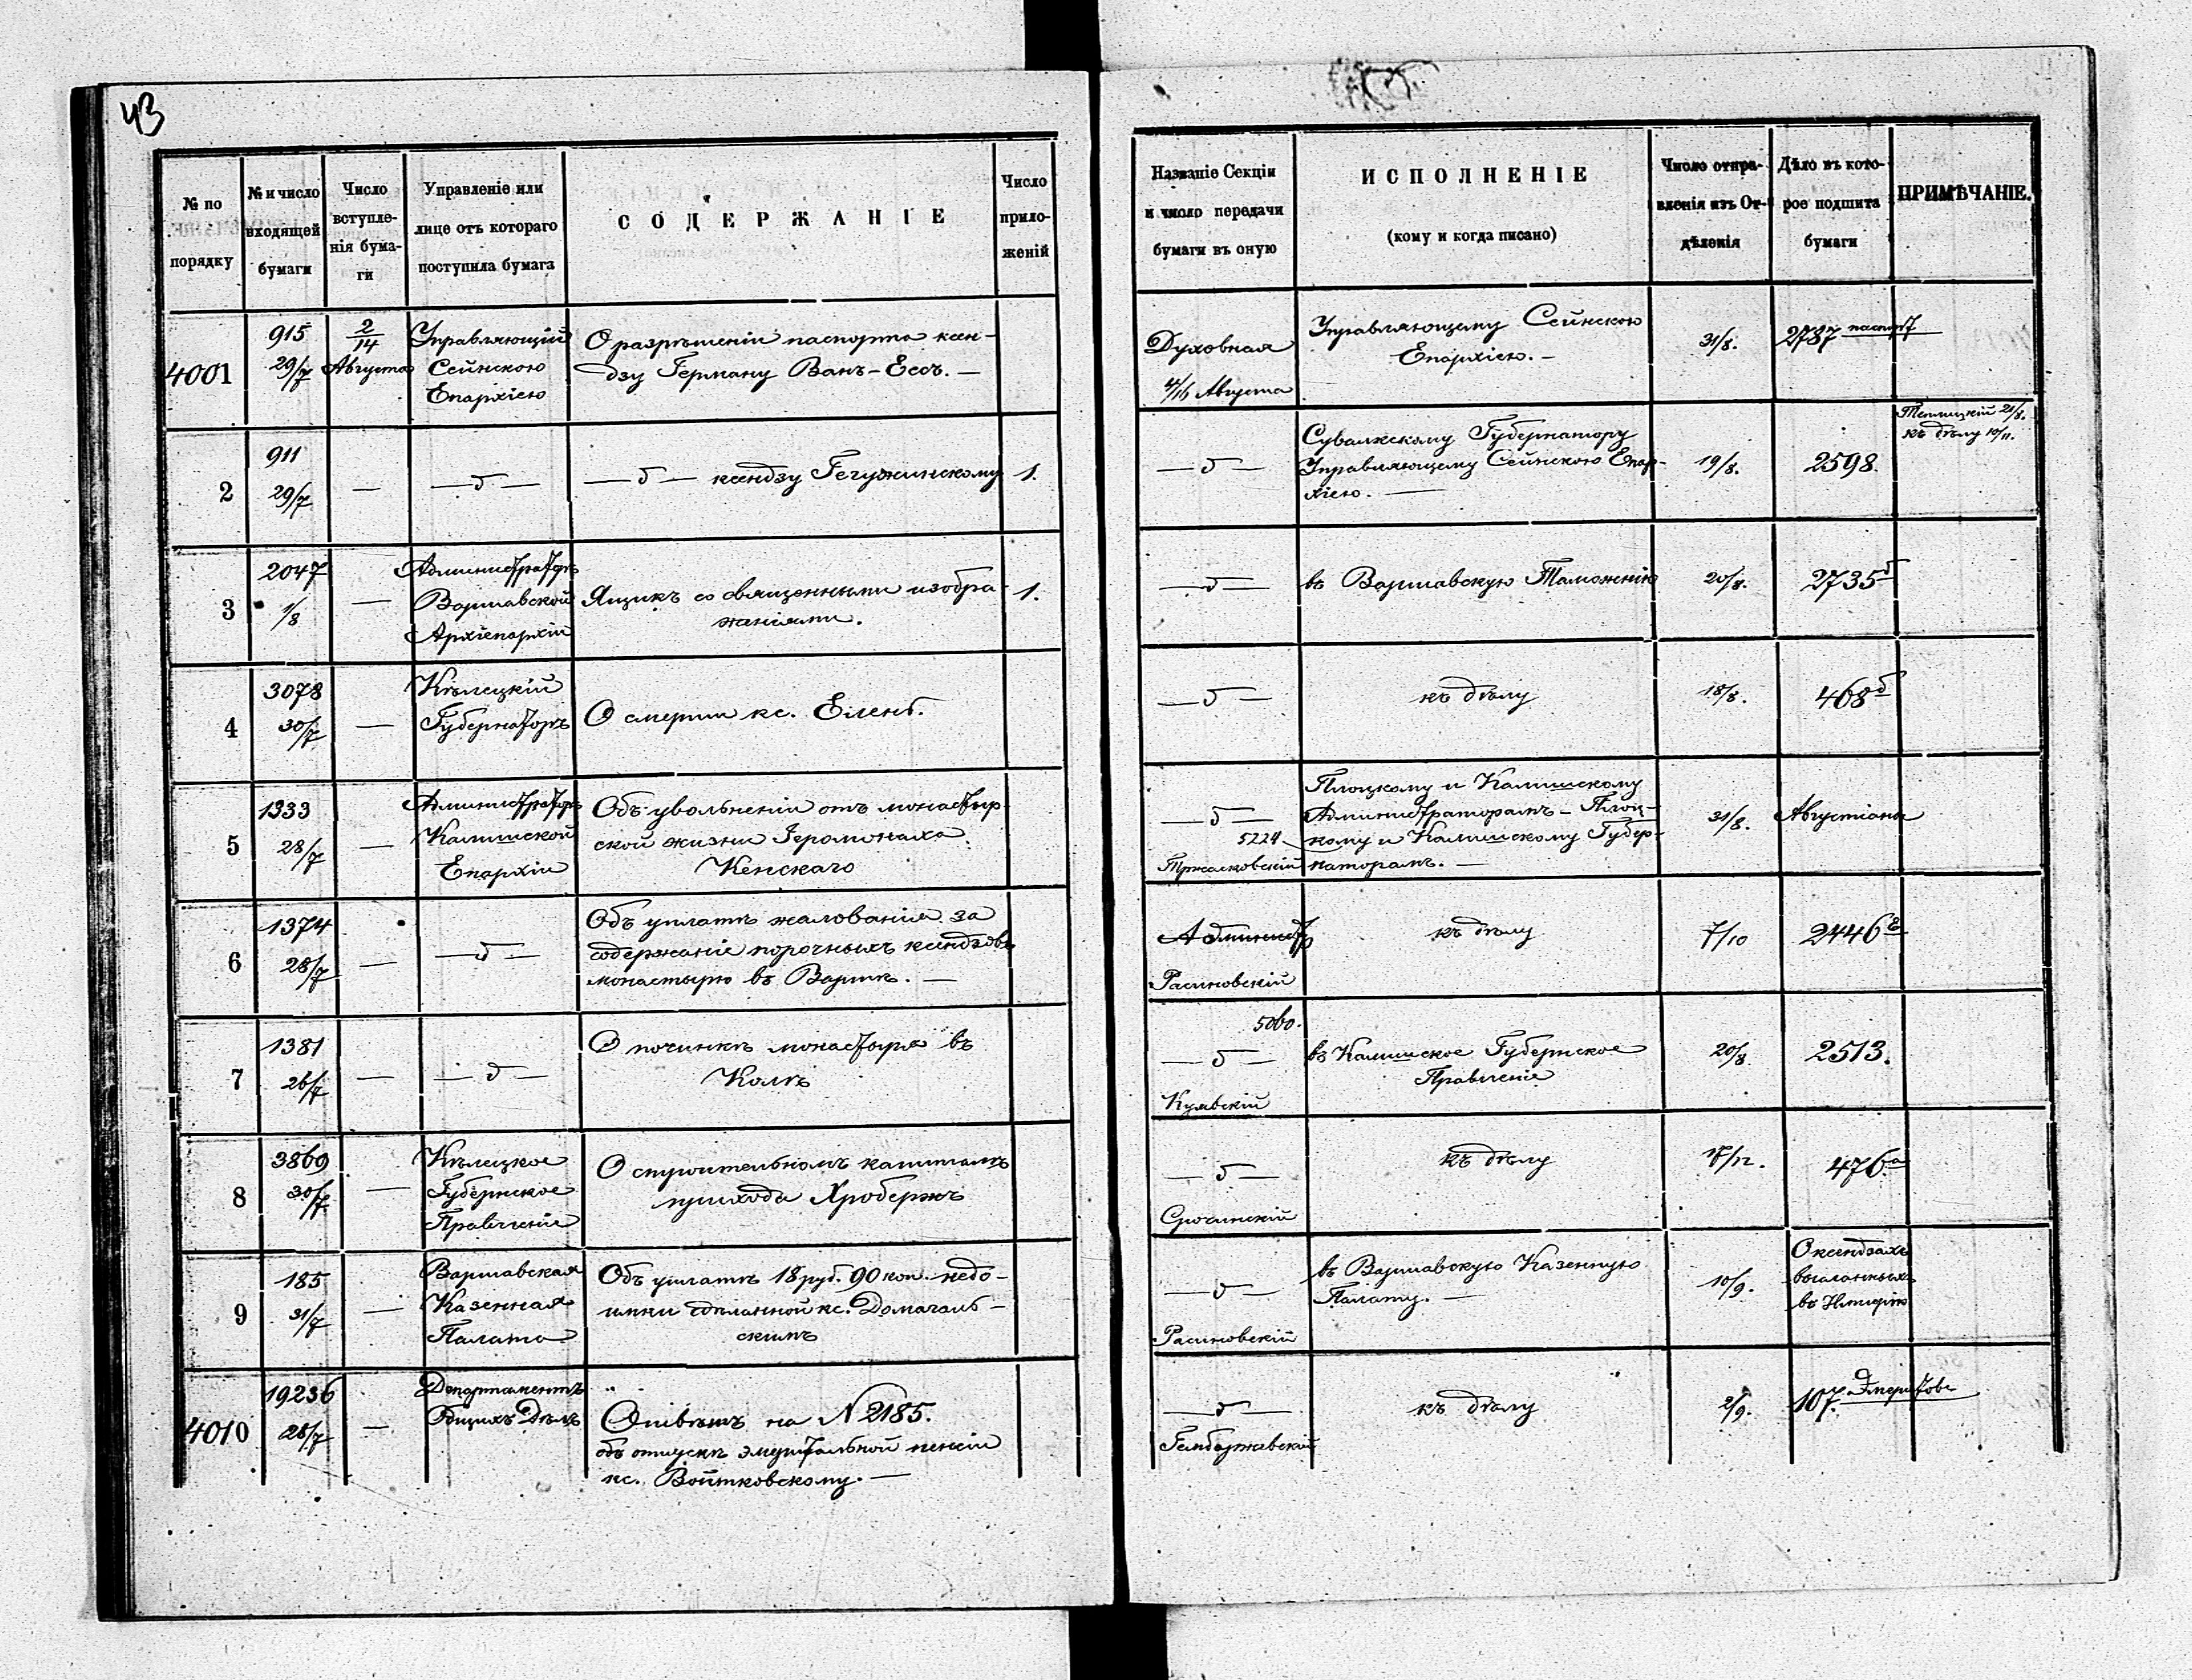 43
№ по порядку
№ и число входящей бумаги
Число вступленія бумаги
Управленіе или лице отъ котораго поступила бумага
СОДЕРЖАНІЕ
Число приложеній
Названіе Секціи и число передачи бумаги въ оную
ИСПОЛНЕНІЕ
(кому и когда писано)
Число отправленія изъ Отдѣленія
Дѣло въ которое подшита бумаги
ПРИМѢЧАНІЕ.
4001
915
29/7
2/14
Августа
Управляющій
Сейнскою
Епархіею
О разрѣшеніи паспорта ксен-
дзу Герману Ванъ-Есъ. —
Духовная
4/16 Августа
Управляющему Сейнскою
Епархіею. —
31/8.
2787 паспорт
2
911
29/7
—
— б —
— б — ксендзу Гегужинскому
1.
— б —
Сувалкскому Губернатору
Управляющему Сейнскою Епар-
хіею. —
19/8.
2598.
21/8.
къ дѣлу 10/11.
3
2047
1/8
—
Администраторъ
Варшавской
Архіепархіи
Ящикъ со священными изобра-
женіями.
1.
— б —
въ Варшавскую Таможню
20/8.
2735 б
4
3078
30/7
—
Кѣлецкій
Губернаторъ
О смерти кс. Еленб.
— б —
къ дѣлу
18/8.
468 б
5
1333
28/7
—
Администраторъ
Калишской
Епархіи
Объ увольненіи отъ монастыр-
ской жизни Іеромонаха
Кенскаго
— б —
5224
Тржасковскій
Плоцкому и Калишскому
Администраторамъ – Плоц-
кому и Калишскому Губер-
наторамъ. —
31/8.
Августіаны
6
1374
28/7
—
— б —
Объ уплатѣ жалованія за
содержаніе порочныхъ ксендзовъ
монастырю въ
Администр
Расиновскій
къ дѣлу
7/10
2446
7
1381
26/7
—
— б —
О починкѣ монастыря въ
Колѣ
5060.
— б —
Куявскій
въ Калишское Губернское
Правленіе
20/8.
2513.
8
3869
30/7
—
Кѣлецкое
Губернское
Правленіе
О строительномъ капиталѣ
прихода Хробержъ
— б —
къ дѣлу
17/12.
476 а
9
185
31/7
—
Варшавская
Казенная
Палата
Объ уплатѣ 18 руб. 90 коп. недо-
имки сдѣланной кс. Домагаль-
скимъ
— б —
Расиновскій
въ Варшавскую Казенную
Палату. —
10/9.
О ксендзахъ
высланныхъ
въ Имперію
4010
19236
28/7
—
Департаментъ
Общихъ Дѣлъ
Отвѣтъ на N 2185.
объ отпускѣ эмеритальной пенсіи
кс. Войтковскому. —
— б —
Гембаржевскій
къ дѣлу
2/9.
107. Эмеритовъ